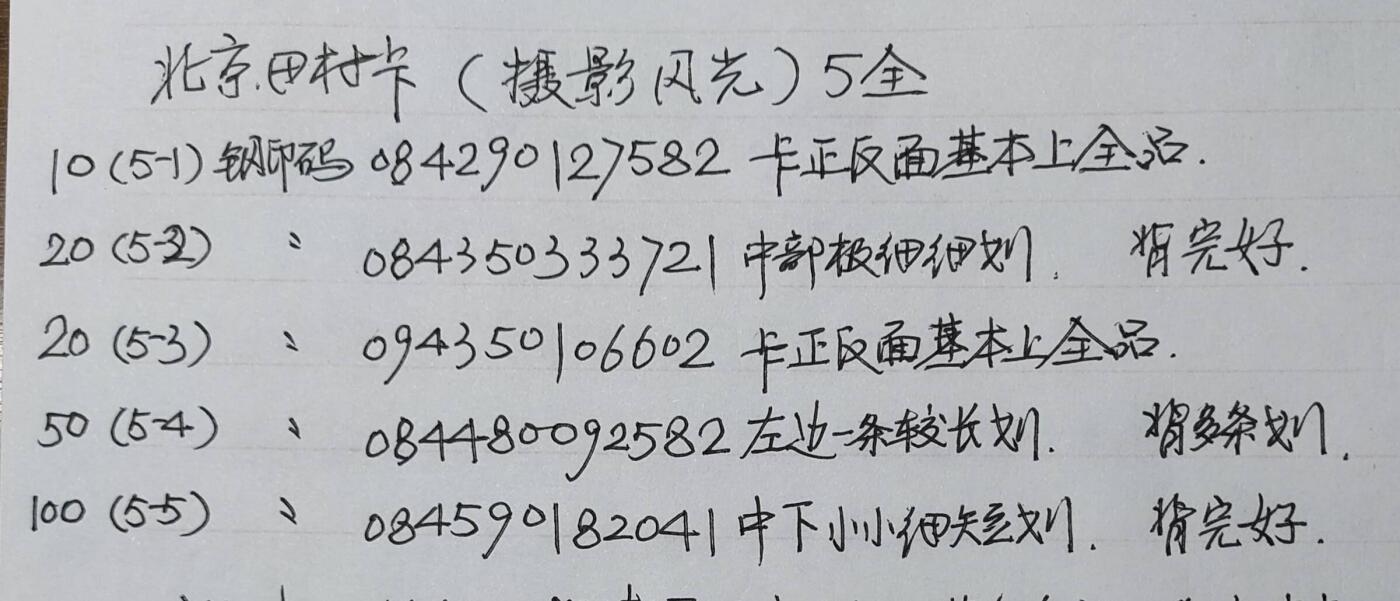 北京田村卡（摄影风光）5全
10（5-1）钢印码 084290127582 卡正反面基本上全品.
20（5-2） 〃 084350333721 中部极细细划. 背完好.
20（5-3） 〃 094350106602 卡正反面基本上全品.
50（5-4） 〃 084480092582 左边一条较长划. 背多条划.
100（5-5） 〃 084590182041 中下小小细短划. 背完好.